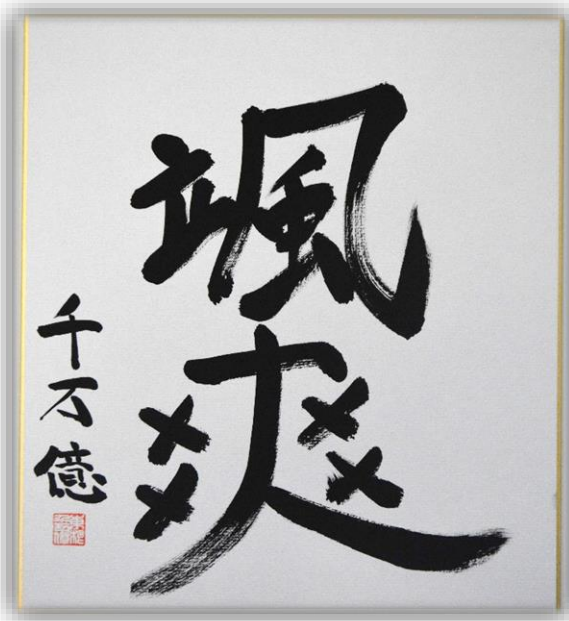 颯爽
千万億